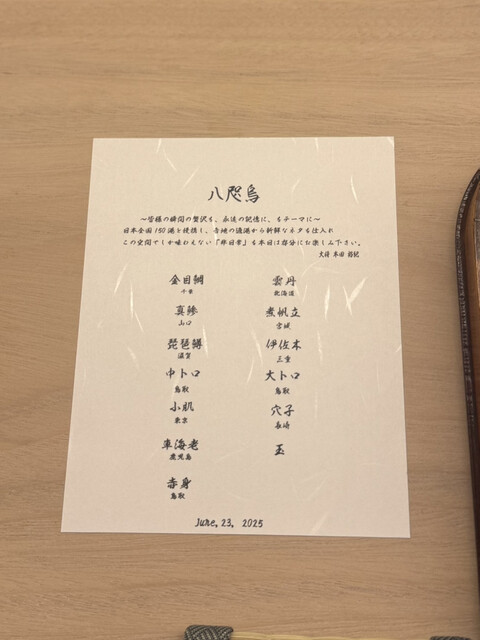 八咫烏
〜皆様の瞬間の贅沢を、永遠の記憶に、をテーマに〜
日本全国150港と提携し、各地の漁港から新鮮なネタを仕入れ
この空間でしか味わえない「非日常」を本日は存分にお楽しみ下さい。
大将 本田
金目鯛
千葉
真鯵
山口
琵琶鱒
滋賀
中トロ
鳥取
小肌
東京
車海老
鹿児島
赤身
鳥取
雲丹
北海道
煮帆立
宮城
伊佐木
三重
大トロ
鳥取
穴子
長崎
玉
June, 23, 2025